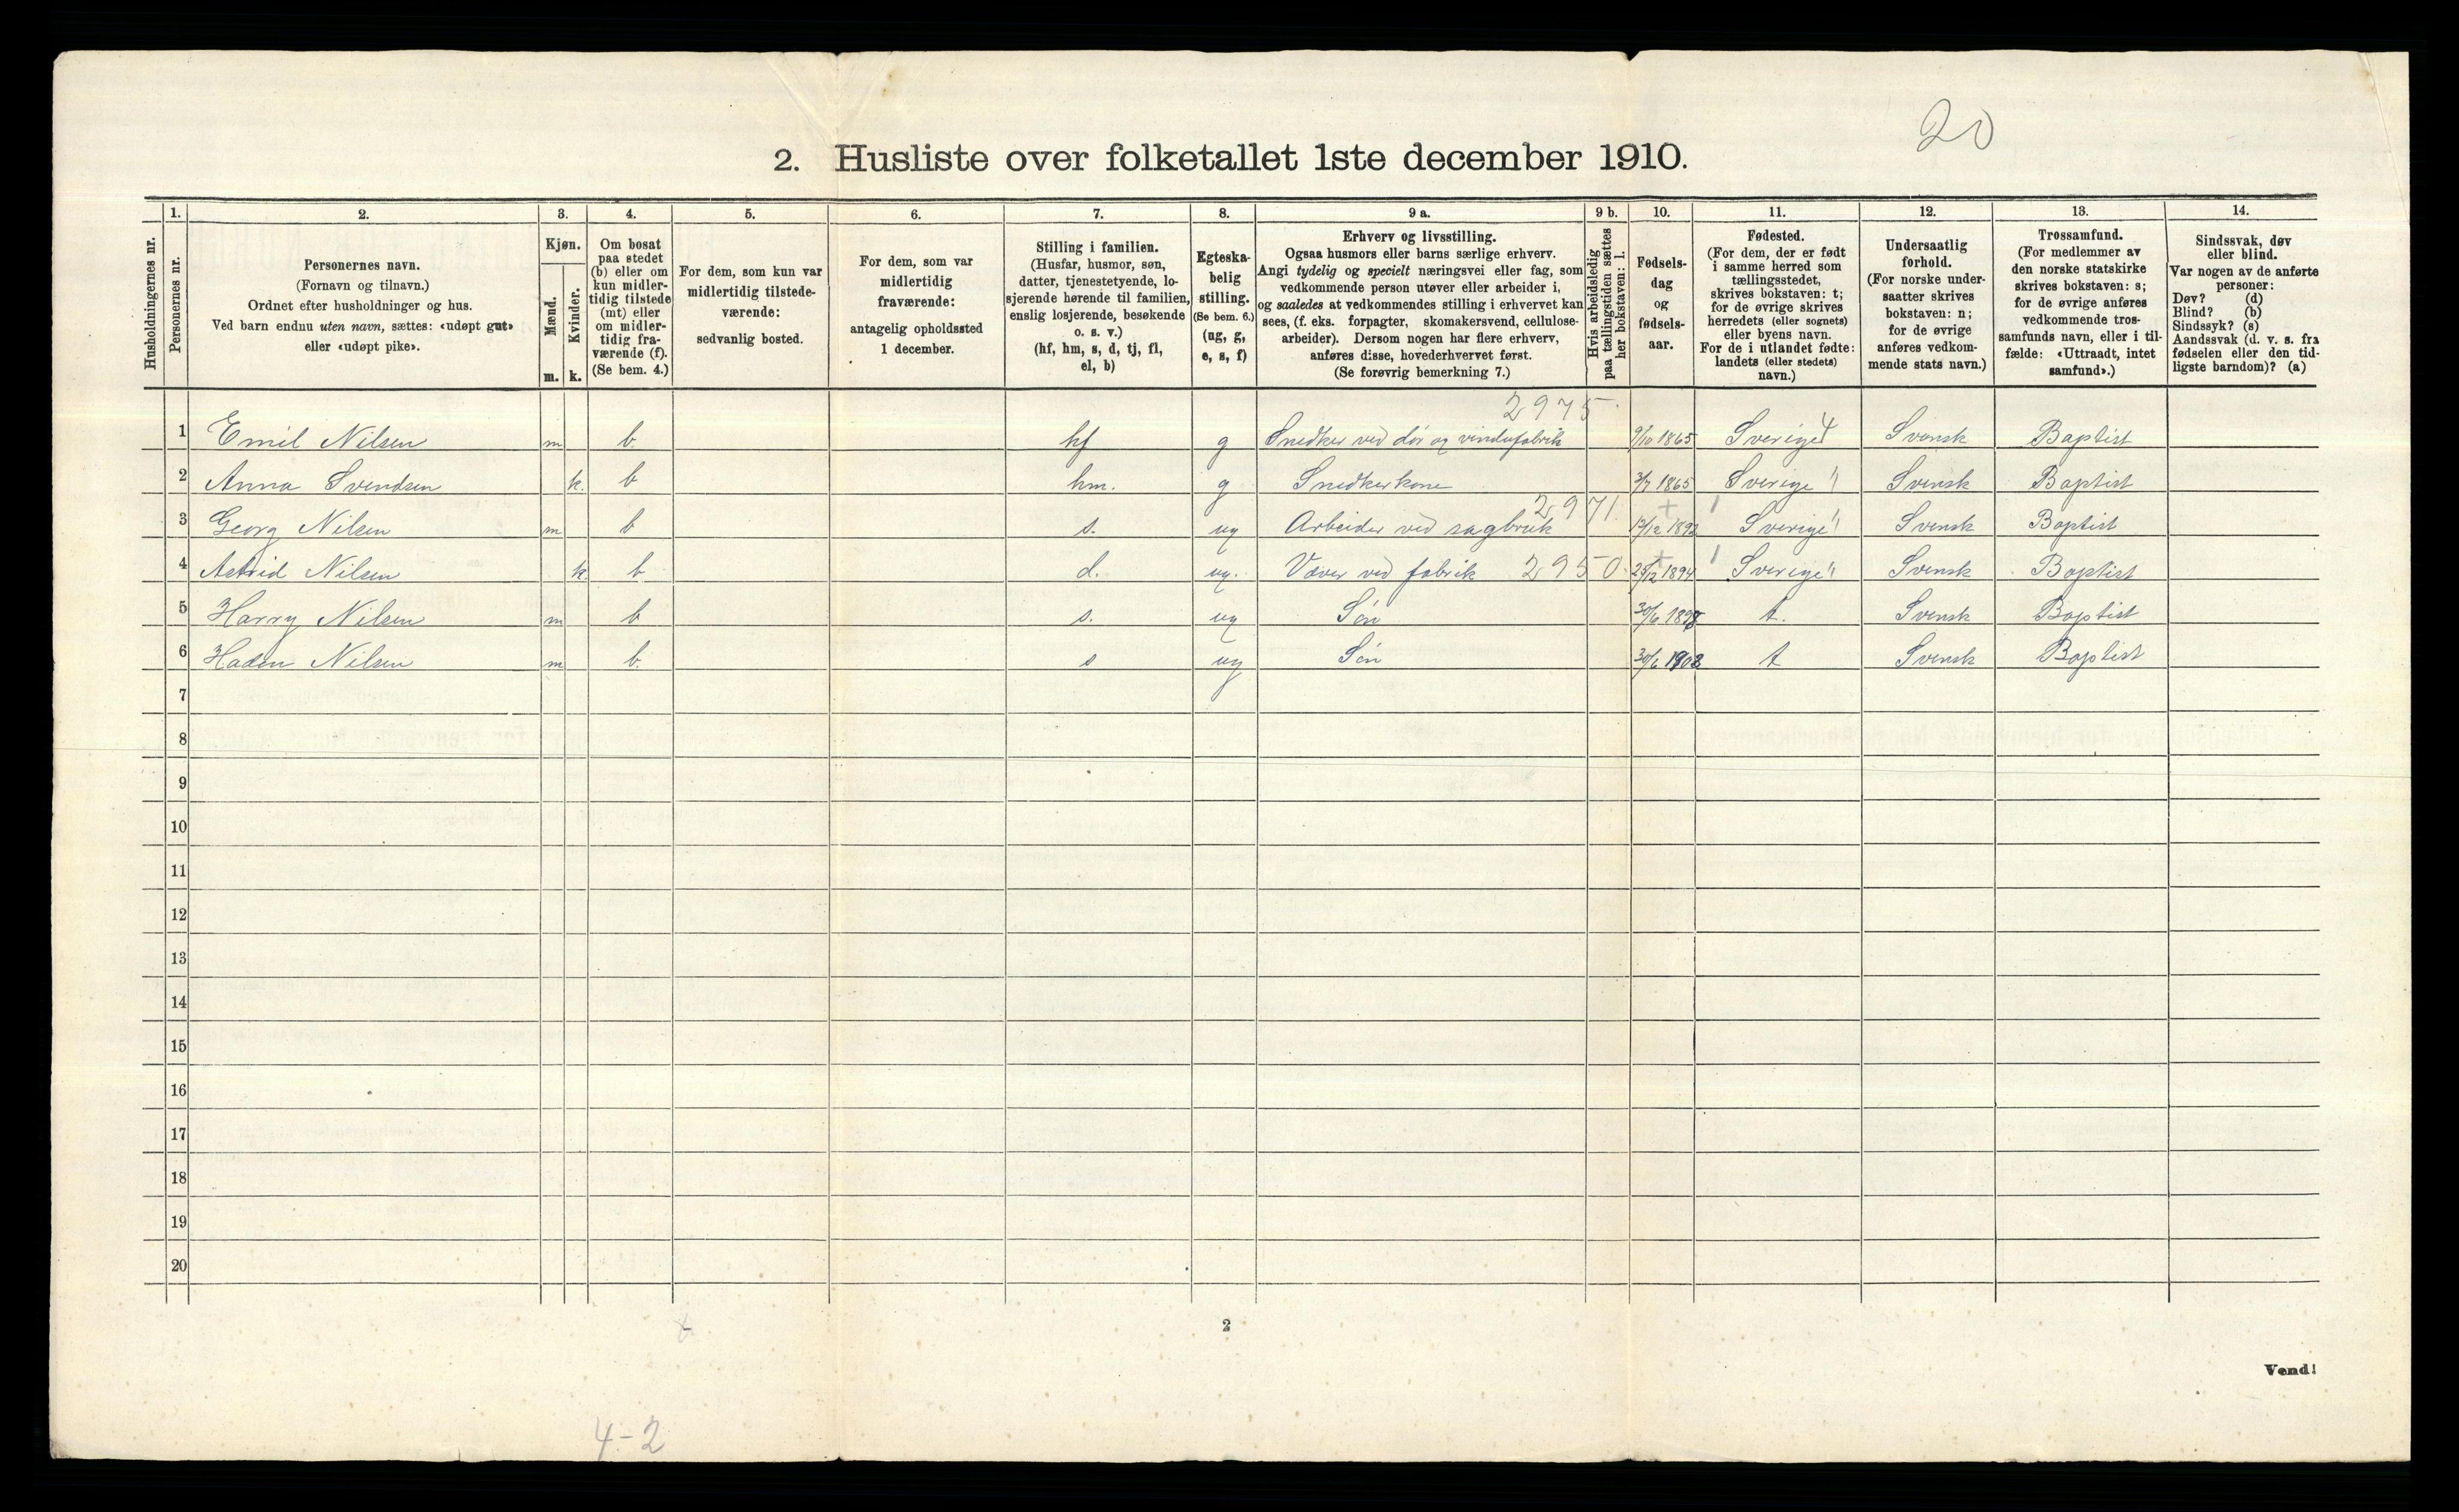 20
2. Husliste over folketallet 1ste december 1910.
Husholdningernes nr.
1.
Personernes nr.
2.
Personernes navn.
(Fornavn og tilnavn.)
Ordnet efter husholdninger og hus.
Ved barn endnu uten navn, sættes: «udøpt gut»
eller «udøpt pike».
3.
Kjøn.
Mænd.
Kvinder.
m. k.
4.
Om bosat
paa stedet
(b) eller om
kun midler-
tidig tilstede
(mt) eller
om midler-
tidig fra-
værende (f).
(Se bem. 4.)
5.
For dem, som kun var
midlertidig tilstede-
værende:
sedvanlig bosted.
6.
For dem, som var
midlertidig
fraværende:
antagelig opholdssted
1 december.
7.
Stilling i familien.
(Husfar, husmor, søn,
datter, tjenestetyende, lo-
sjerende hørende til familien,
enslig losjerende, besøkende
o. s. v.)
(hf, hm, s, d, tj, fl,
el, b)
8.
Egteska-
belig
stilling.
(Se bem. 6.)
(ug, g,
e, s, f)
9 a.
Erhverv og livsstilling.
Ogsaa husmors eller barns særlige erhverv.
Angi tydelig og specielt næringsvei eller fag, som
vedkommende person utøver eller arbeider i,
og saaledes at vedkommendes stilling i erhvervet kan
sees, (f. eks. forpagter, skomakersvend, cellulose-
arbeider). Dersom nogen har flere erhverv,
anføres disse, hovederhvervet først.
(Se forøvrig bemerkning 7.)
9 b.
Hvis arbeidsledig
paa tællingstiden sættes
her bokstaven: l.
10.
Fødsels-
dag
og
fødsels-
aar.
11.
Fødested.
(For dem, der er født
i samme herred som
tællingsstedet,
skrives bokstaven: t;
for de øvrige skrives
herredets (eller sognets)
eller byens navn.
For de i utlandet fødte:
landets (eller stedets)
navn.)
12.
Undersaatlig
forhold.
(For norske under-
saatter skrives
bokstaven: n;
for de øvrige
anføres vedkom-
mende stats navn.)
13.
Trossamfund.
(For medlemmer av
den norske statskirke
skrives bokstaven: s;
for de øvrige anføres
vedkommende tros-
samfunds navn, eller i til-
fælde: «Uttraadt, intet
samfund».)
14.
Sindssvak, døv
eller blind.
Var nogen av de anførte
personer:
Døv? (d)
Blind? (b)
Sindssyk? (s)
Aandssvak (d. v. s. fra
fødselen eller den tid-
ligste barndom)? (a)
2975
1 Emil Nilsen m b. hf g Snedker ved dør og vindufabrik 9/10 1865 Sverige 4 Svensk Baptist
2 Anna Svendsen k. b hm. g Snedkerkone 3/7 1865 Sverige " Svensk Baptist
2971.
3 Georg Nilsen m b s. ug Arbeider ved sagbruk 1892 Sverige " Svensk Baptist
4 Astrid Nilsen k. b d. ug. Væver ved fabrik 2950 1894 Sverige " Svensk Baptist
5 Harry Nilsen m b s. ug Søn 30/6 1898 t. Svensk Baptist
6 Nilsen m b. s ug Søn 30/6 1908 t Svensk Baptist
7
8
9
10
11
12
13
14
15
16
17
18
19
20
2
Vend!
4-2